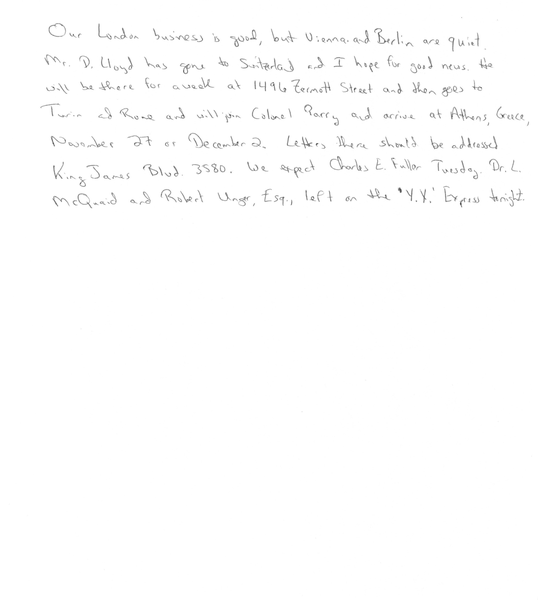 Our London business is good, but Vienna and Berlin are quiet.
Mr. D. Lloyd has gone to Switzerland and I hope for good news. He
will be there for a week at 1496 Zermott Street and then goes to
Turin and Rome and will join Colonel Parry and arrive at Athens, Greece,
November 27 or December 2. Letters there should be addressed
King James Blvd. 3580. We expect Charles E. Fuller Tuesday. Dr. L.
McQuaid and Robert Unger, Esq., left on the 'Y.X.' Express tonight.